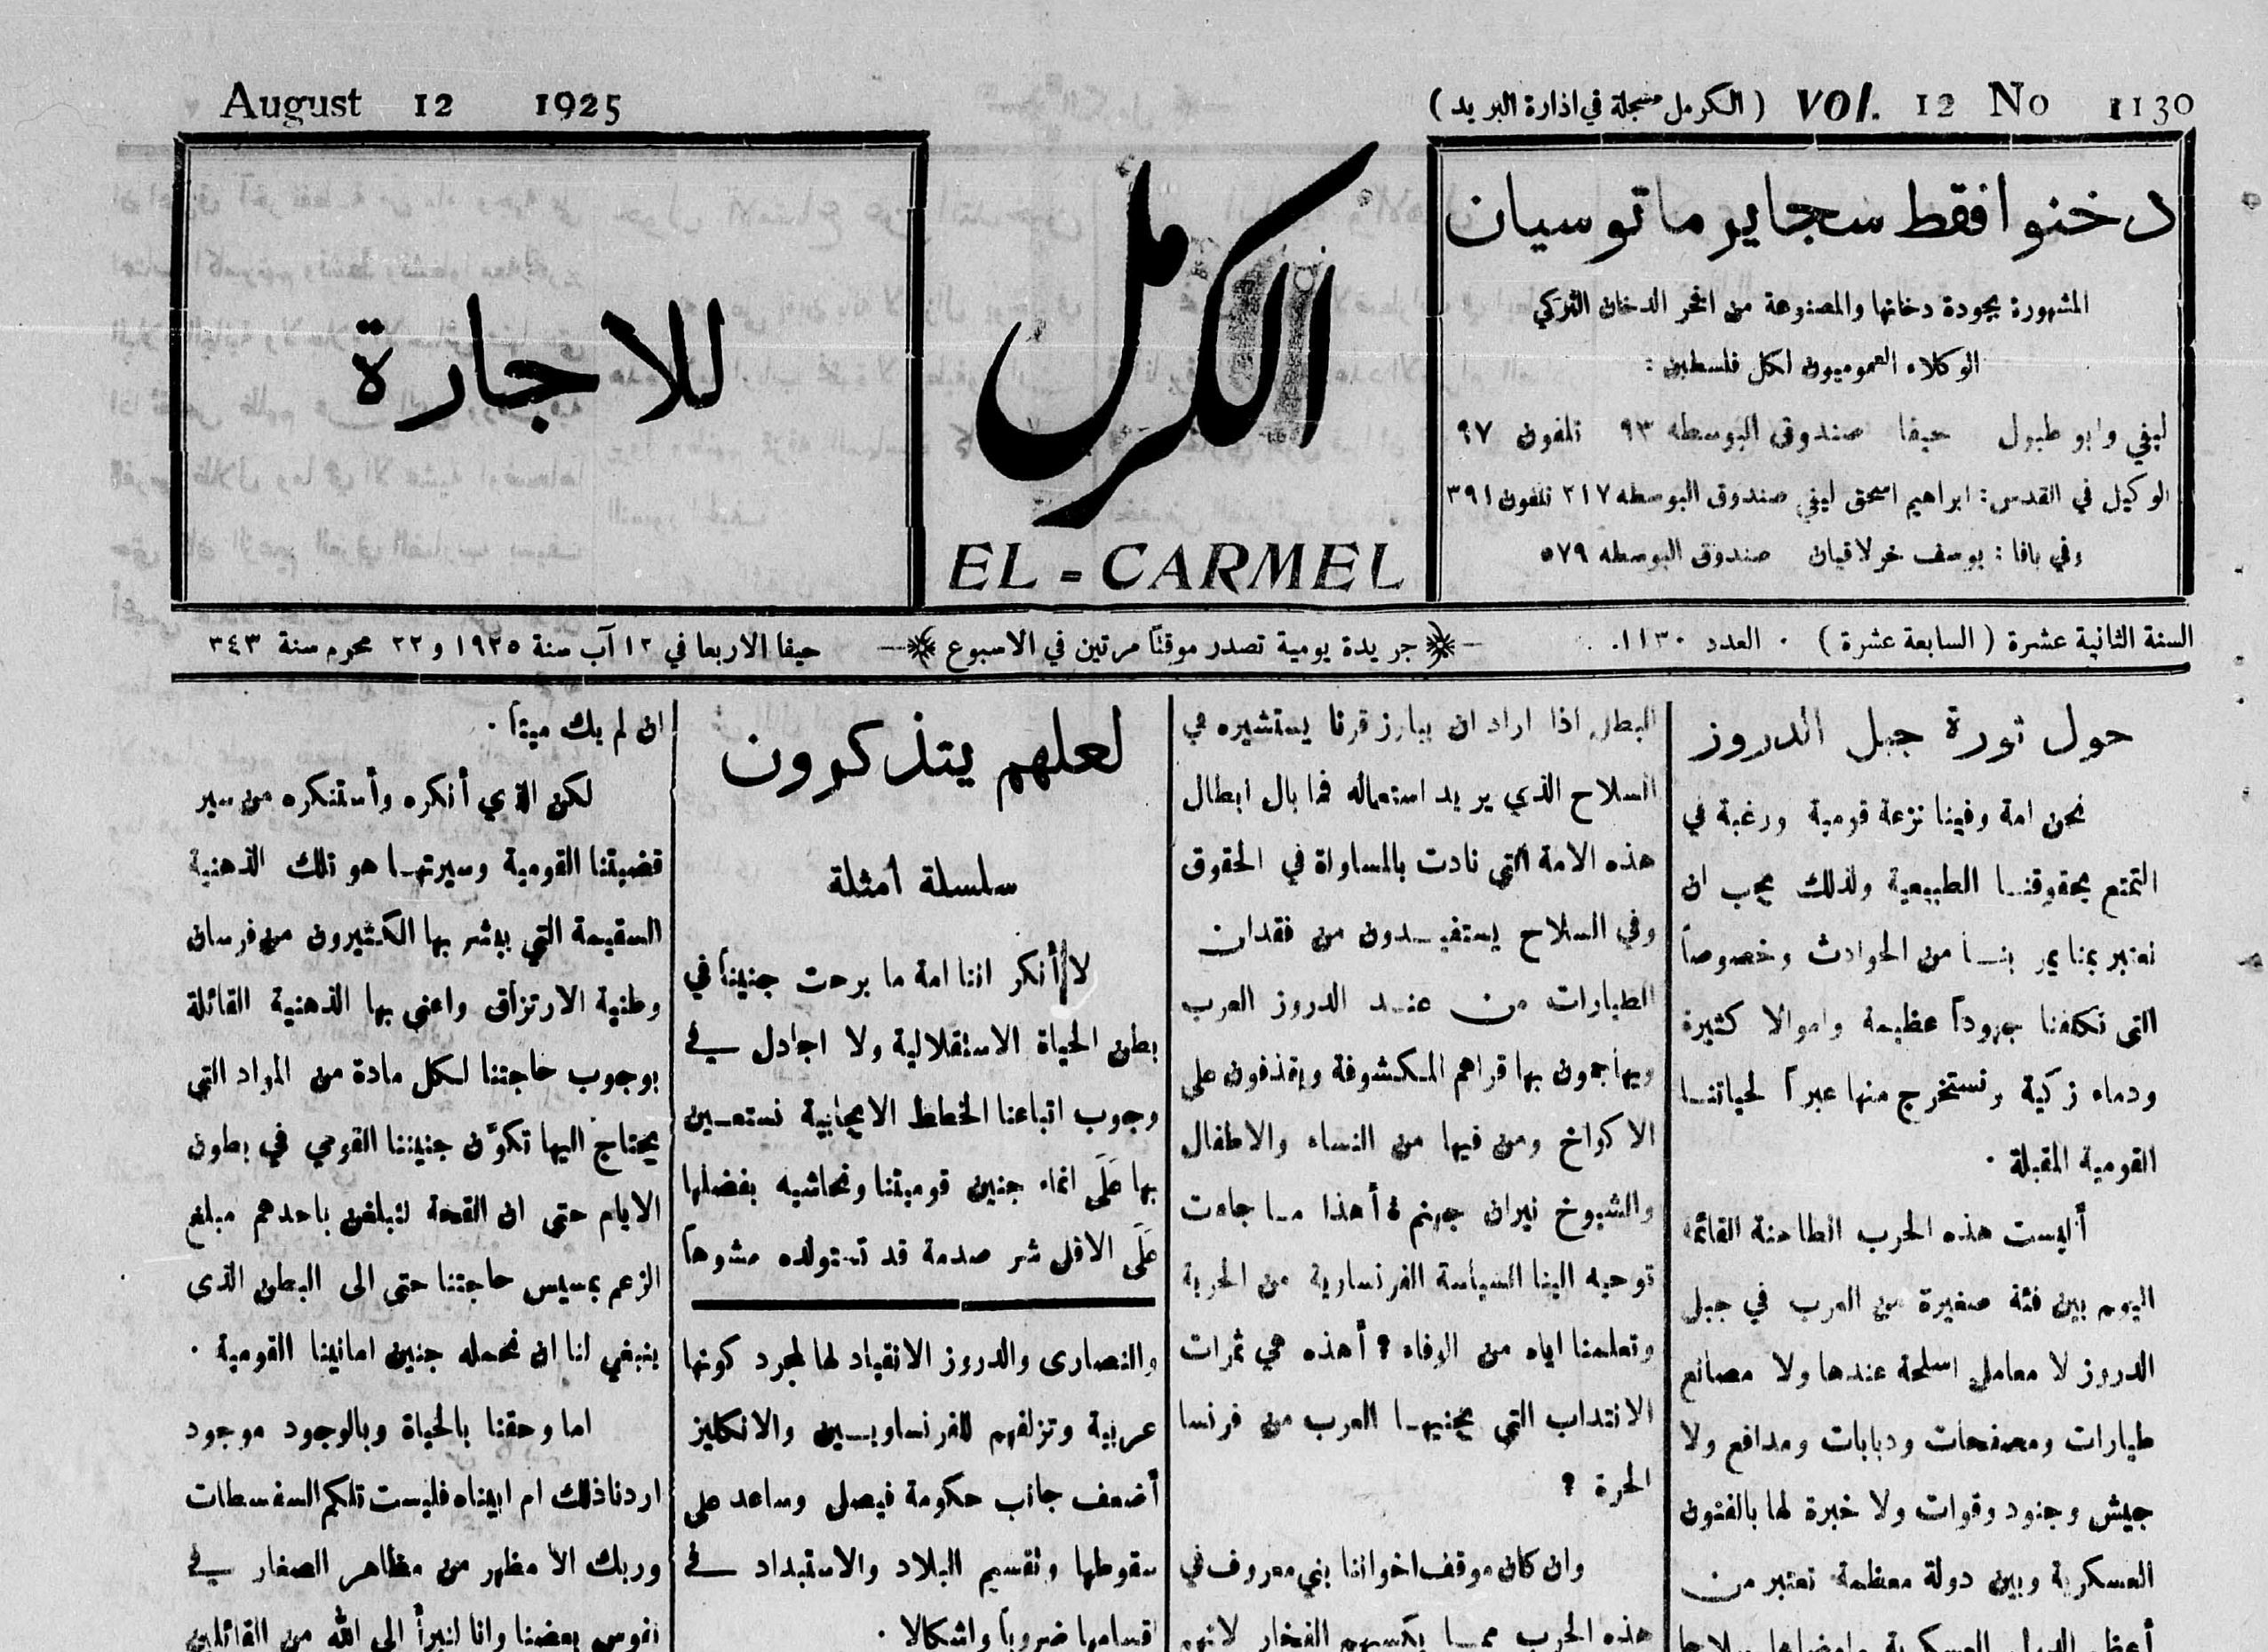 August 12 1925
( الكرمل مسجلة في اذارة البريد ) VOl. 12 No 1130
دخنوا فقط سجاير ماتوسيان
المشهورة بجودة دخانها والمصنوعة من افخر الدخان التركي
الوكلاء العموميون لكل فلسطين :
ليفي وابو طبول حيفا صندوق البوسطه ٩٣ تلفون ٩٧
الوكيل في القدس : ابراهيم اسحق ليفي صندوق البوسطه ٢١٧ تلفون ٣٩١
وفي يافا : يوسف خولاقيان صندوق البوسطه ٥٧٩
الكرمل
EL - CARMEL
للاجارة
السنة الثانية عشرة ( السابعة عشرة ) ٠ العدد ١١٣٠٠
جريدة يومية تصدر موقتاً مرتين في الاسبوع
حيفا الاربعا في ١٢ آب سنة ١٩٢٥ و ٢٢ محرم سنة ٣٤٣
حول ثورة جبل الدروز
نحن امة وفينا نزعة قومية ورغبة في
التمتع بحقوقنا الطبيعية ولذلك يجب ان
نعتبر بما يمر بنا من الحوادث وخصوصاً
التى تكلفنا جهوداً عظيمة واموالا كثيرة
ودماء زكية ونستخرج منها عبراً لحياتنا
القومية المقبلة ٠
أليست هذه الحرب الطاحنة القائمة
اليوم بين فئة صغيرة من العرب في جبل
الدروز لا معامل اسلحة عندها ولا مصانع
طيارات ومصفحات ودبابات ومدافع ولا
جيش وجنود وقوات ولا خبرة لها بالفنون
العسكرية وبين دولة معظمة تعتبر من
أعظم الدول العسكرية
البطل اذا اراد ان يبارز قرنا يستشيره في
السلاح الذي يريد استعماله فما بال ابطال
هذه الامة التي نادت بالمساواة في الحقوق
وفي السلاح يستفيدون من فقدان
الطيارات من عند الدروز العرب
ويهاجمون بها قراهم المكشوفة ويقذفون على
الاكواخ ومن فيها من النساء والاطفال
والشيوخ نيران جهنم ؟ أهذا ما جاءت
توحيه الينا السياسة الفرنساوية من الحرية
وتعلمنا اياه من الوفاء ؟ أهذه هي ثمرات
الانتداب التي يجنيها العرب من فرنسا
الحرة ؟
وان كان موقف اخواننا بني معروف في
هذه الحرب مما يكسبهم الفخار لانهم
لعلهم يتذكرون
سلسلة امثلة
لا أنكر اننا امة ما برحت جنيناً في
بطن الحياة الاستقلالية ولا اجادل في
وجوب اتباعنا الخطط الايجابية نستعين
بها عَلَى انماء جنين قوميتنا ونحاشيه بفضلها
عَلَى الاقل شر صدمة قد تستولده مشوهاً
والنصارى والدروز الانقياد لها لمجرد كونها
عربية وتزلفهم للفرنساويين والانكليز
أضعف جانب حكومة فيصل وساعد على
سقوطها وتقسيم البلاد والاستبداد في
اقسامها ضروباً واشكالا ٠
ان لم يك ميتاً ٠
لكن الذي أنكره وأستنكره من سير
قضيتنا القومية وسيرتها هو تلك الذهنية
السقيمة التي يبشر بها الكثيرون من فرسان
وطنية الارتزاق واعني بها الذهنية القائلة
بوجوب حاجتنا لكل مادة من المواد التي
يحتاج اليها تكوّن جنيننا القومي في بطون
الايام حتى ان القحة لتبلغن باحدهم مبلغ
الزعم بمسيس حاجتنا حتى الى البطن الذى
ينبغي لنا ان نحمله جنين امانينا القومية ٠
اما وحقنا بالحياة وبالوجود موجود
اردنا ذلك ام ابيناه فليست تلكم السفسطات
وربك الا مظهر من مظاهر الصغار في
نفوس بعضنا وانا لنبرأ الى الله من القائلين